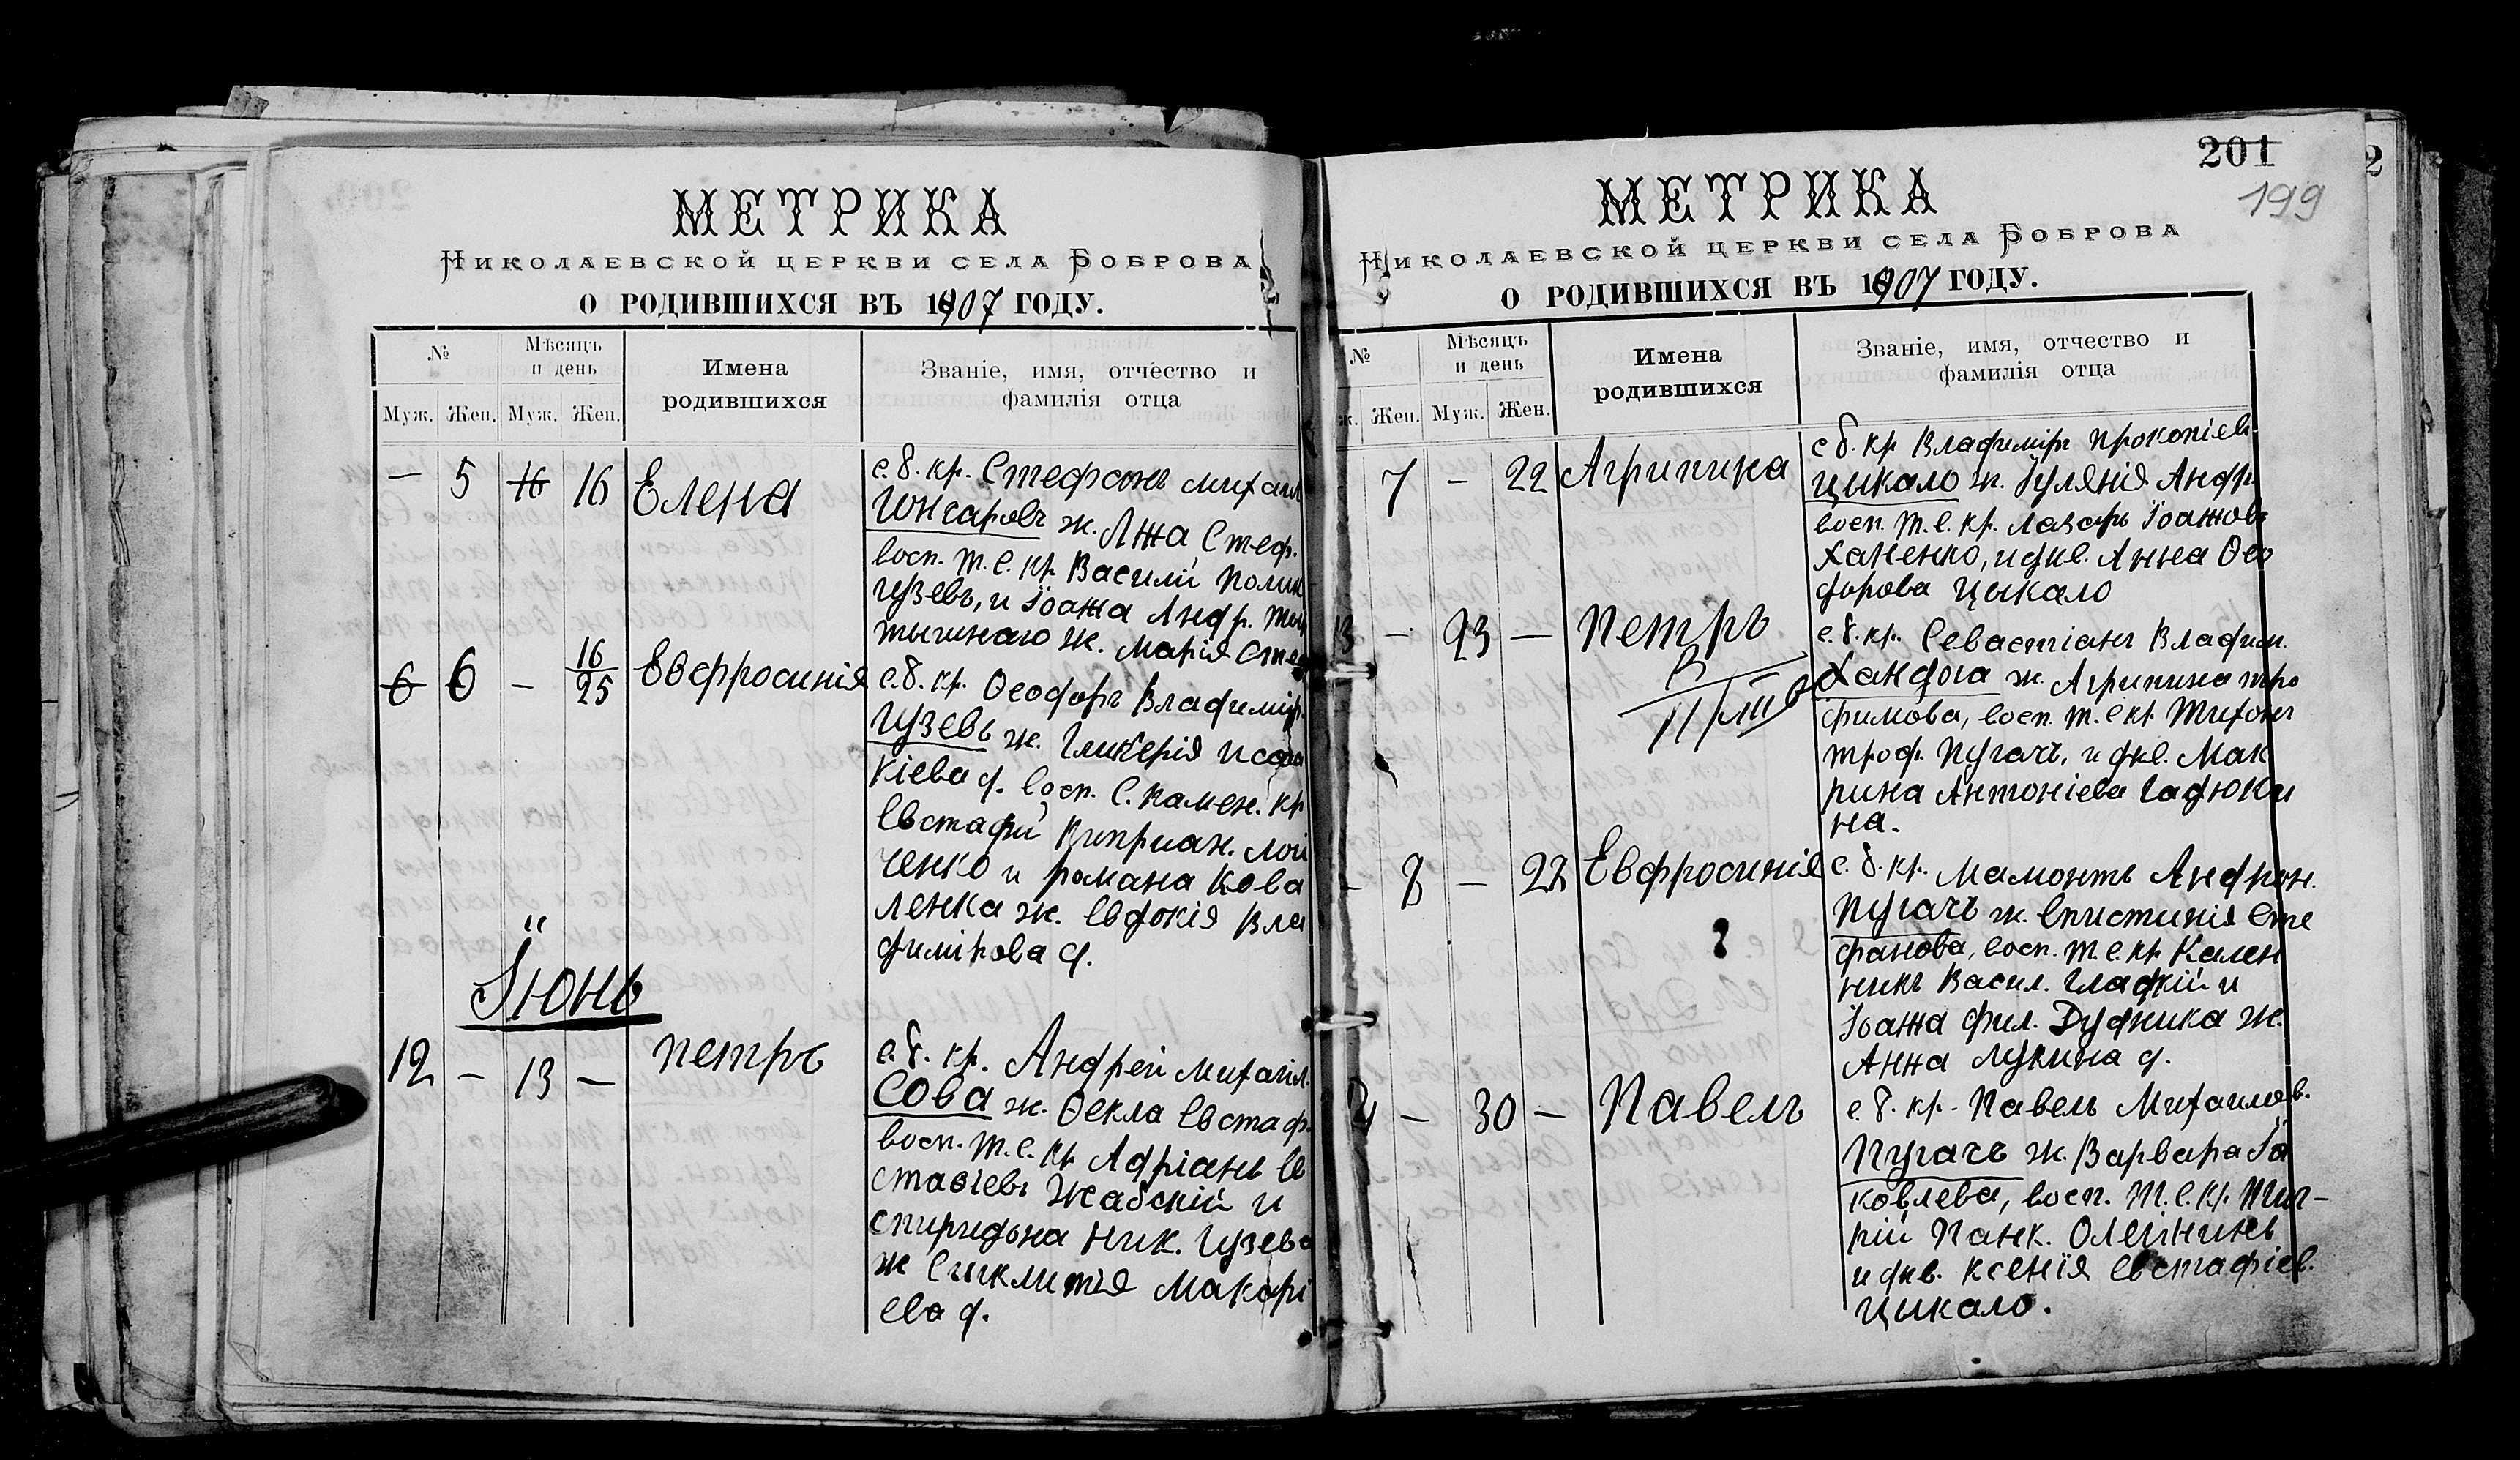 МЕТРИКА
Николаевской церкви села Боброва
О РОДИВШИХСЯ ВЪ 1907 ГОДУ.
№
Мѣсяцъ
и день
Имена
родившихся
Званіе, имя, отчество и
фамилія отца
Муж. Жен. Муж. Жен.
— 5 16 16 Елена
с.б. кр. Стефанъ Михаил
Гонгаровъ ж. Анна Стеф.
восп. т.с. кр Василій Поли
Гузевъ, и Іоанна Андр.
ж. Марія Сте
6 6 — 16/25 Евфросинія
с.б. кр. Ѳеодоръ Владимір.
Гузевъ ж. Гликерія Исаа
кіева д. восп. с. Камен. кр
Евстафій Киприан. Мой
ченко и Романа Кова
ленка ж. Евдокія Вла
димірова д.
Іюнь
12 — 13 — Петръ
с.б. кр. Андрей Михаил.
Сова ж. Ѳекла Евстаф.
восп. т.с. кр Адріанъ Ев
стафіевъ Жабскій и
Спиридона Ник. Гузева
ж Сигклитія Макарі
ева д.
201
2
199
МЕТРИКА
Николаевской церкви села Боброва
О РОДИВШИХСЯ ВЪ 1907 ГОДУ.
№
Мѣсяцъ
и день
Имена
родившихся
Званіе, имя, отчество и
фамилія отца
ж. Жен. Муж. Жен.
7 — 22 Агрипина
с б. кр Владиміръ Прокопіев
Цыкало ж. Іуліанія Андр.
восп. т.с. кр. Лазарь Іоаннов
Ханенко, и дѣв. Анна Ѳео
дорова Цыкало
13 — 23 — Петръ
с.б. кр. Севастіанъ Владим.
Хандога ж. Агрипина Тро
фимова, восп. т.с кр. Тихонъ
Троф. Пугачъ, и дѣв. Мак
рина Антоніева Гадюки
на.
— 8 — 22 Евфросинія
с.б. кр. Мамонтъ Андрон.
Пугачъ ж. Епистимія Сте
фанова, восп. т.с. кр Кален
никъ Васил. Гладкій и
Іоанна Фил. Дудника ж.
Анна Лукина д.
— 30 — Павелъ
с.б. кр. Павелъ Михаилов.
Пугачъ ж. Варвара Іа
ковлева, восп. т.с. кр.
Панк. Олейникъ
и дѣв. Ксенія Евстафіев.
Цыкало.